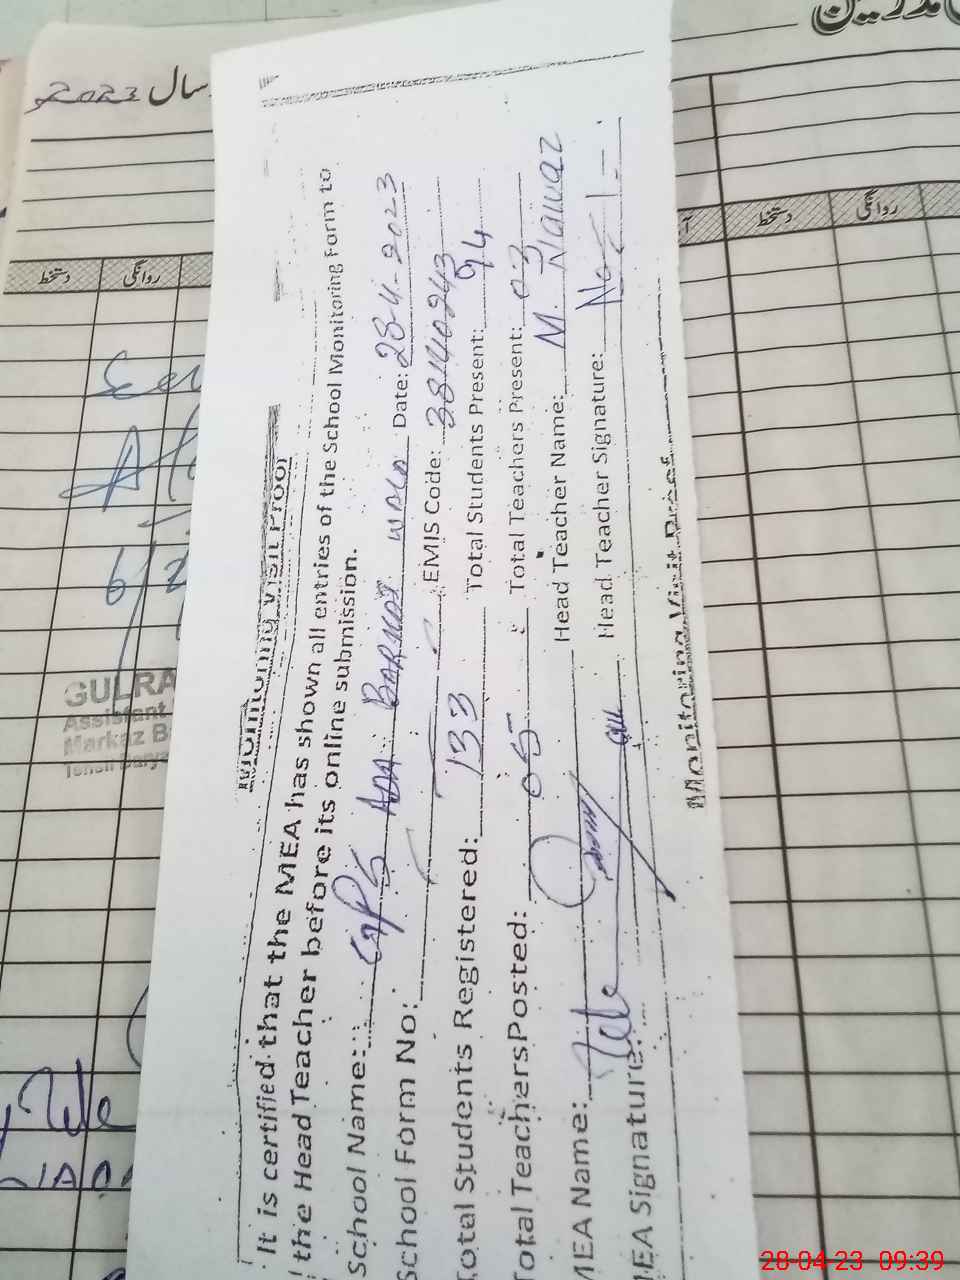 مدرسین
سال 2023
دستخط
روانگی
دستخط
روانگی
GULRA
Assistant
Markaz B
Tehsil Darya
Monitoring Visit Proof
It is certified that the MEA has shown all entries of the School Monitoring Form to
the Head Teacher before its online submission.
School Name: GPS ADA BARKAT WALA Date: 28-4-2023
School Form No: EMIS Code: 38140243
Total Students Registered: 133 Total Students Present: 94
Total TeachersPosted: 05 Total Teachers Present: 03
MEA Name: Head Teacher Name: M. Nawaz
MEA Signature: Head Teacher Signature:
Monitoring Visit Proof
28-04-23 09:39